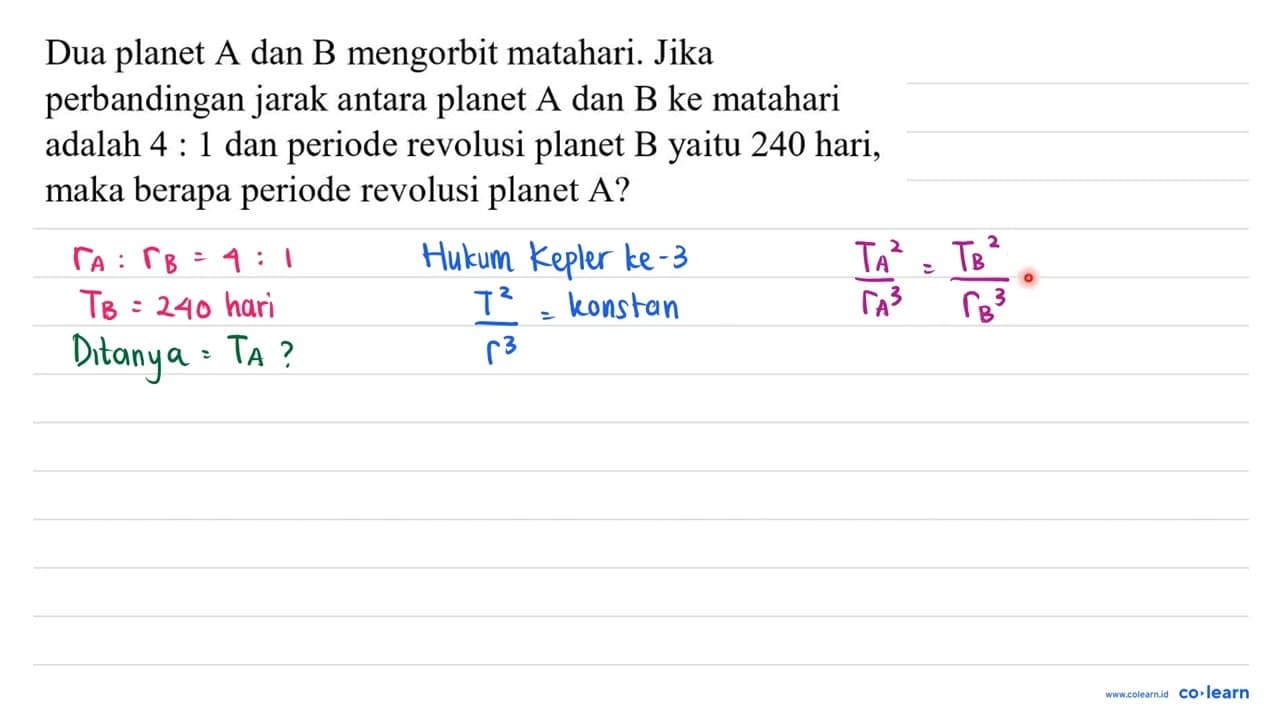 Dua planet A dan B mengorbit matahari. Jika
perbandingan jarak antara planet A dan B ke matahari
adalah 4 : 1 dan periode revolusi planet B yaitu 240 hari,
maka berapa periode revolusi planet A?
rA : rB = 4 : 1
TB = 240 hari
Ditanya = TA ?
Hukum Kepler ke-3
T² / r³ = konstan
TA² / rA³ = TB² / rB³
www.colearn.id co·learn